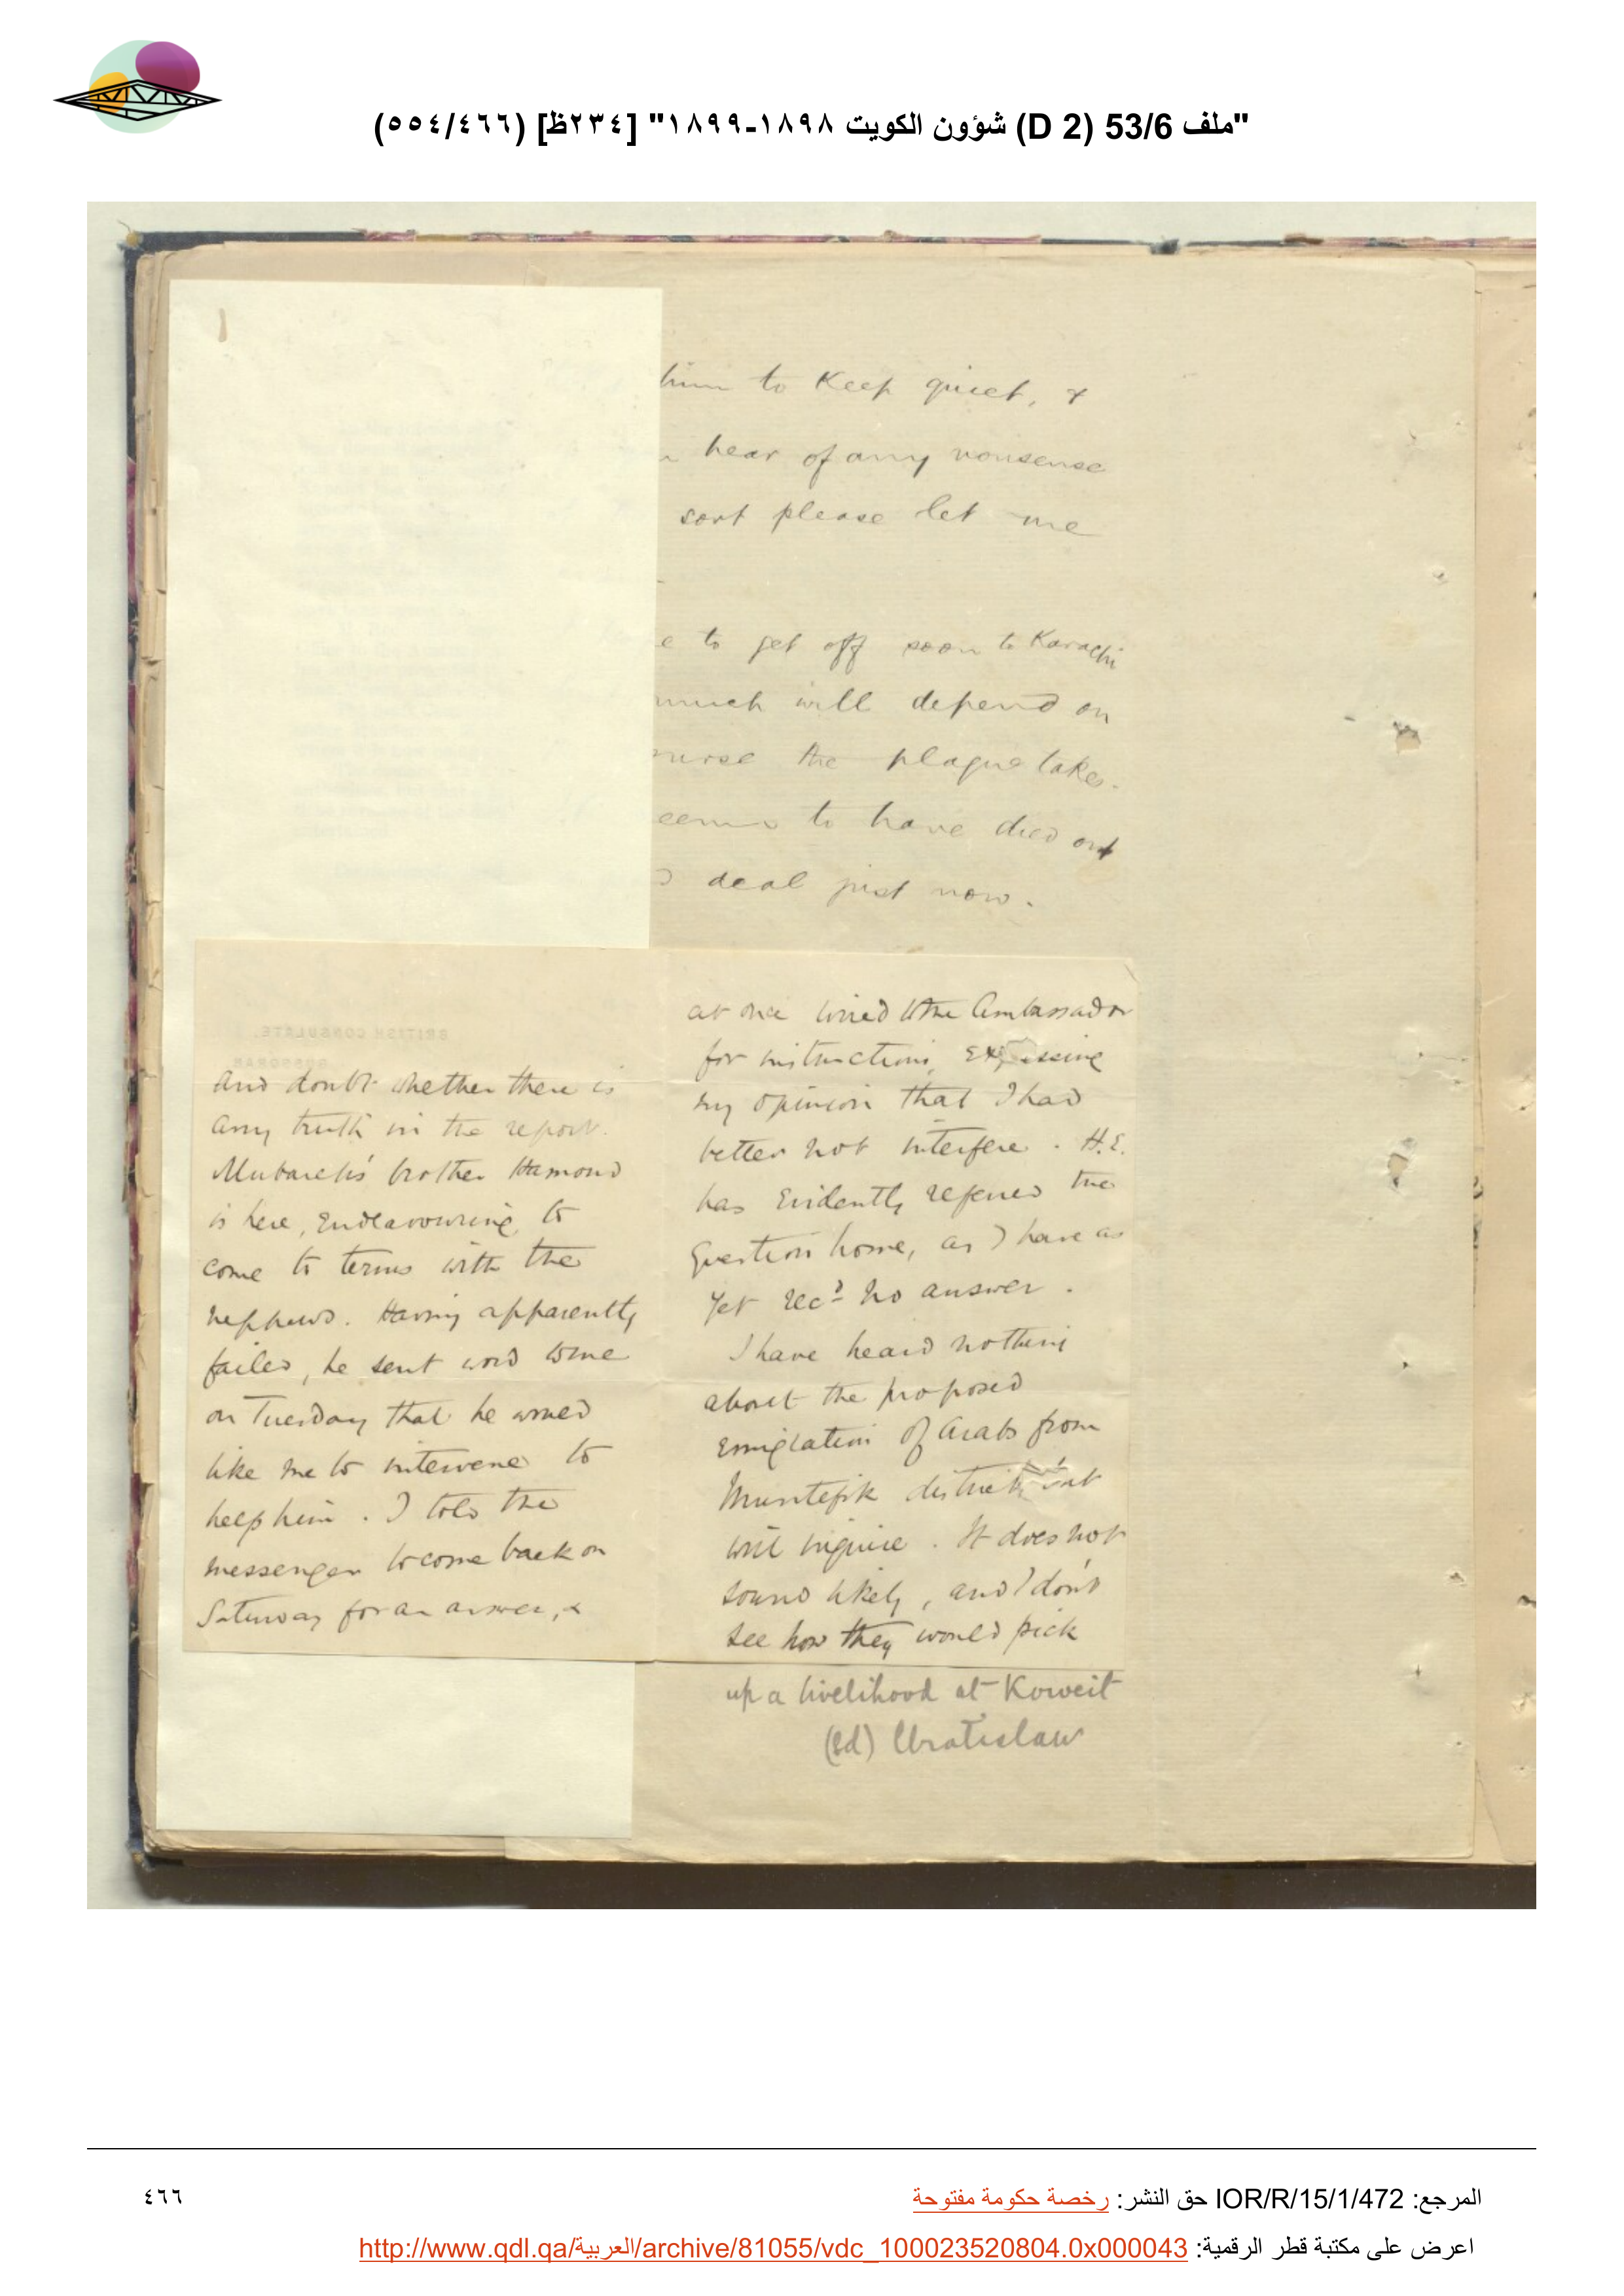 "ملف 53/6 (D 2) شؤون الكويت ١٨٩٨-١٨٩٩" [٢٣٤ظ] (٥٥٤/٤٦٦)
him to keep quiet, &
hear of any nonsense
sort please let me
to get off soon to Karachi
much will depend on
the plague takes.
to have died out
deal just now.
BRITISH CONSULATE.
BUSSORAH
and doubt whether there is
any truth in the report.
Mubarek's brother Hamoud
is here, endeavouring to
come to terms with the
nephews. Having apparently
failed, he sent word to me
on Tuesday that he would
like me to intervene to
help him. I told the
messenger to come back on
Saturday for an answer, &
at once wired to the Ambassador
for instructions, expressing
my opinion that I had
better not interfere. H.E.
has evidently referred the
question home, as I have as
yet recd no answer.
I have heard nothing
about the proposed
emigration of Arabs from
Muntefik district but
will inquire. It does not
sound likely, and I don't
see how they would pick
up a livelihood at Koweit
(Sd) Wratislaw
المرجع: IOR/R/15/1/472 حق النشر: رخصة حكومة مفتوحة
٤٦٦
اعرض على مكتبة قطر الرقمية: http://www.qdl.qa/العربية/archive/81055/vdc_100023520804.0x000043